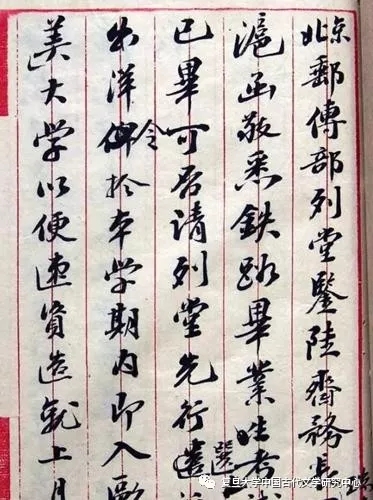 北京郵傳部列堂鑒陸齋務長
滬函敬悉鉄路畢業生考
已畢可否請列堂先行選
出洋俾令於本学期内即入
美大学以便速資造就上月
复旦大学中国古代文学研究中心